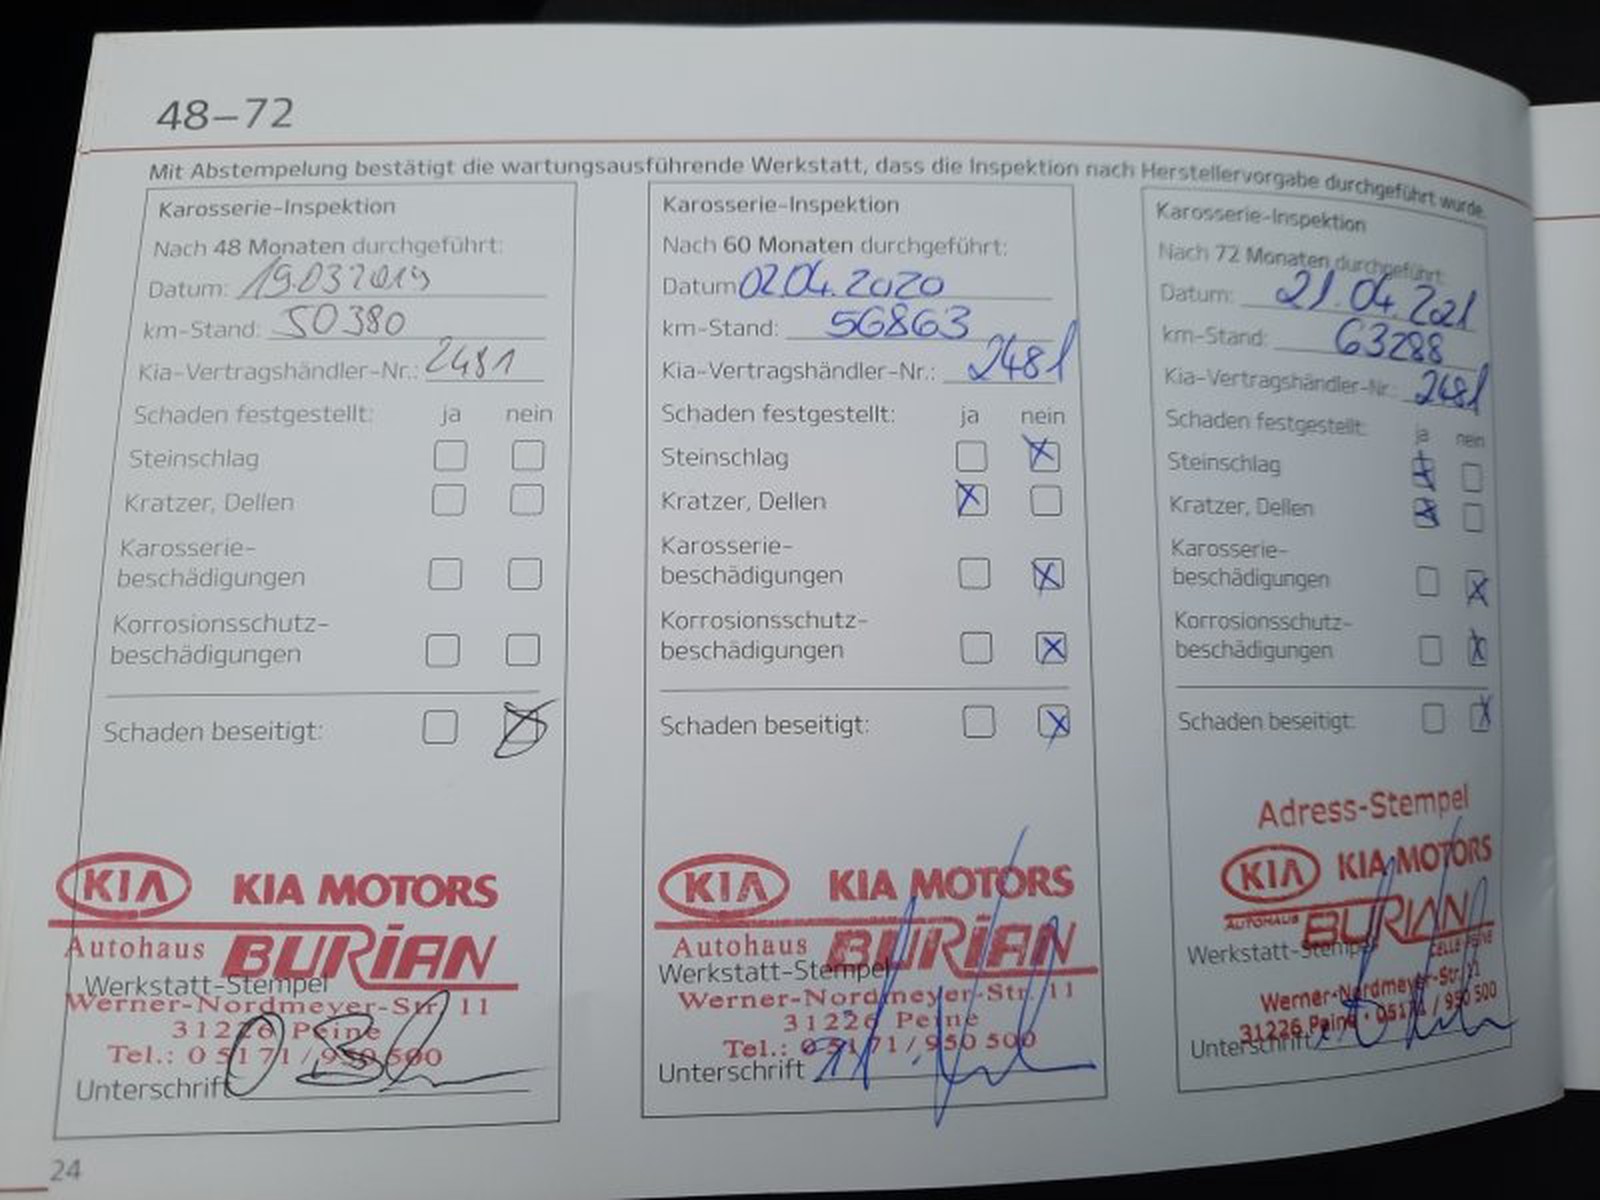 48–72
Mit Abstempelung bestätigt die wartungsausführende Werkstatt, dass die Inspektion nach Herstellervorgabe durchgeführt wurde.
Karosserie-Inspektion
Nach 48 Monaten durchgeführt:
Datum: 19.03.2019
km-Stand: 50380
Kia-Vertragshändler-Nr.: 2481
Schaden festgestellt: ja nein
Steinschlag
Kratzer, Dellen
Karosserie-
beschädigungen
Korrosionsschutz-
beschädigungen
Schaden beseitigt:
KIA KIA MOTORS
Autohaus BURiAN
Werkstatt-Stempel
Werner-Nordmeyer-Str. 11
31226 Peine
Tel.: 0 51 71 / 950 500
Unterschrift
Karosserie-Inspektion
Nach 60 Monaten durchgeführt:
Datum 02.04.2020
km-Stand: 56863
Kia-Vertragshändler-Nr.: 2481
Schaden festgestellt: ja nein
Steinschlag
Kratzer, Dellen
Karosserie-
beschädigungen
Korrosionsschutz-
beschädigungen
Schaden beseitigt:
KIA KIA MOTORS
Autohaus BURiAN
Werkstatt-Stempel
Werner-Nordmeyer-Str. 11
31226 Peine
Tel.: 05171/950 500
Unterschrift
Karosserie-Inspektion
Nach 72 Monaten durchgeführt:
Datum: 21.04.2021
km-Stand: 63288
Kia-Vertragshändler-Nr.: 2481
Schaden festgestellt: ja nein
Steinschlag
Kratzer, Dellen
Karosserie-
beschädigungen
Korrosionsschutz-
beschädigungen
Schaden beseitigt:
Adress-Stempel
KIA KIA MOTORS
AUTOHAUS BURIAN
CELLE PEINE
Werkstatt-Stempel
Werner-Nordmeyer-Str. 11
31226 Peine · 05171 / 950 500
Unterschrift
24